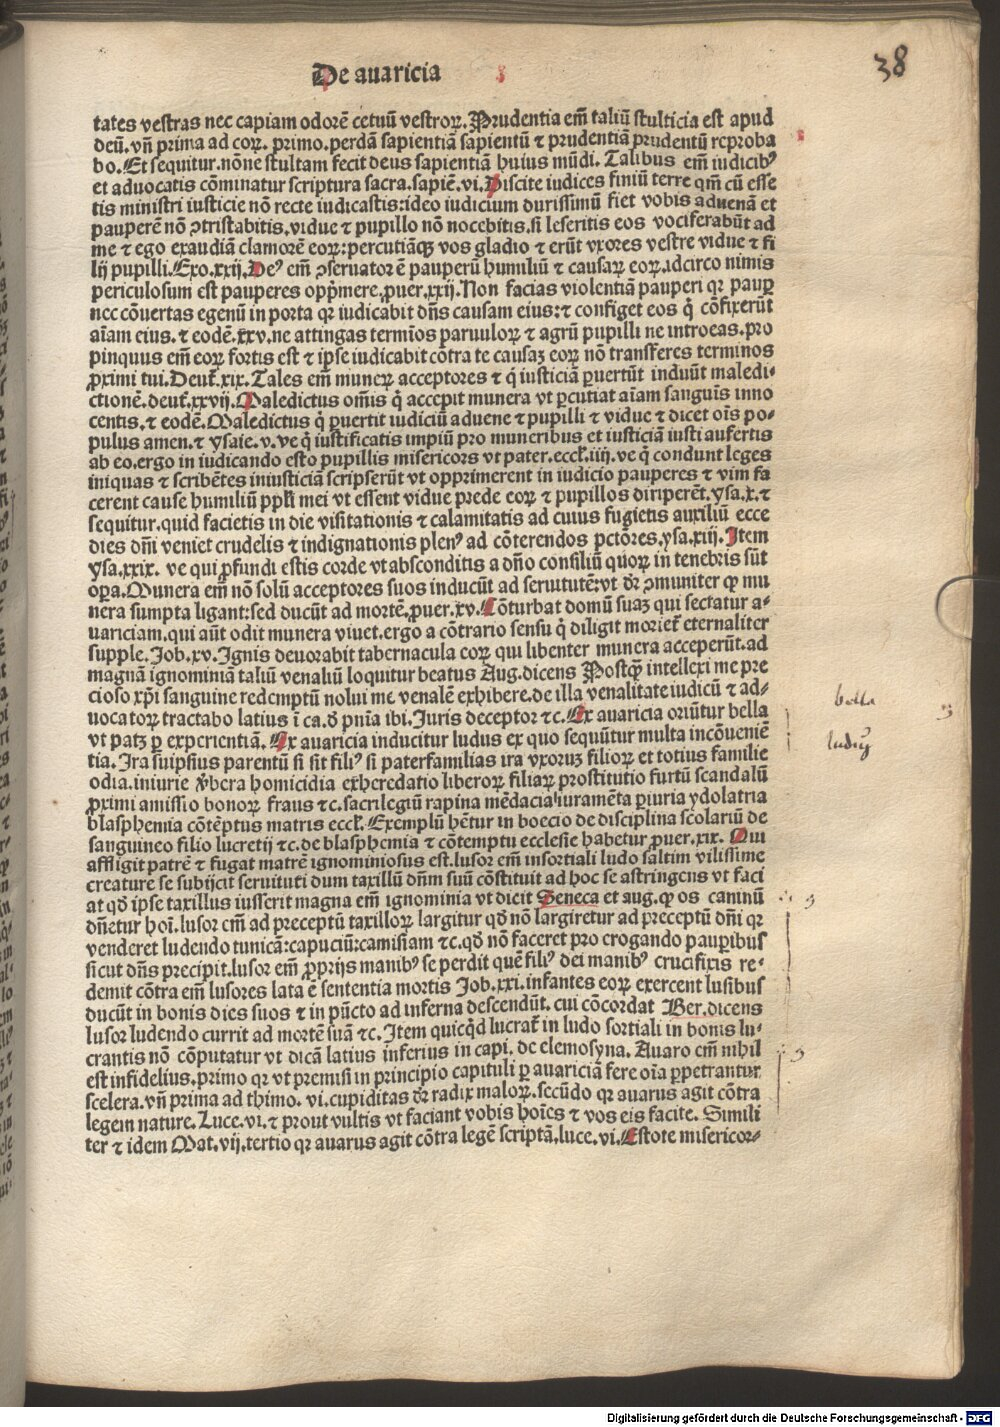 De auaricia
38
tates vestras nec capiam odorē cetuū vestroꝝ. Prudentia em̄ taliū stulticia est apud
deū. vn̄ prima ad coꝝ. primo. perdā sapientiā sapientū ⁊ prudentiā prudentū reproba
bo. Et sequitur. nōne stultam fecit deus sapientiā huius mūdi. Talibus em̄ iudicibꝰ
et aduocatis cōminatur scriptura sacra. sapiē. vi. Discite iudices finiū terre qm̄ cū esse
tis ministri iusticie nō recte iudicastis: ideo iudicium durissimū fiet vobis aduenā et
pauperē nō ꝯtristabitis. vidue ⁊ pupillo nō nocebitis. si leseritis eos vociferabūt ad
me ⁊ ego exaudiā clamorē eoꝝ: percutiāqꝫ vos gladio ⁊ erūt vxores vestre vidue ⁊ fi
lij pupilli. Exo. xxij. Deꝰ em̄ ꝯseruator ē pauperū humiliū ⁊ causaꝝ eoꝝ. idcirco nimis
periculosum est pauperes opp̄mere. ꝓuer. xxij. Non facias violentiā pauperi qr paup̄
nec cōuertas egenū in porta qr iudicabit dn̄s causam eius: ⁊ configet eos q̇ cōfixerūt
aīam eius. ⁊ eodē. xxv. ne attingas termīos paruuloꝝ ⁊ agrū pupilli ne introeas. pro
pinquus em̄ eoꝝ fortis est ⁊ ip̄e iudicabit cōtra te causaꝫ eoꝝ nō transferes terminos
ꝓximi tui. Deut̄. xix. Tales em̄ muneꝝ acceptores ⁊ q̇ iusticiā ꝑuertūt induūt maledi-
ctionē. deut̄. xxvij. Maledictus om̄is q̇ accepit munera vt ꝑcutiat aīam sanguīs inno
centis. ⁊ eodē. Maledictus q̇ ꝑuertit iudiciū aduene ⁊ pupilli ⁊ vidue ⁊ dicet oīs po-
pulus amen. ⁊ ysaie. v. ve q̇ iustificatis impiū pro muneribus et iusticiā iusti aufertis
ab eo. ergo in iudicando esto pupillis misericors vt pater. eccl̄. iiij. ve q̇ condunt leges
iniquas ⁊ scribētes iniusticiā scripserūt vt opprimerent in iudicio pauperes ⁊ vim fa
cerent cause humiliū pp̄li mei vt essent vidue prede eoꝝ ⁊ pupillos diriperēt. ysa. x. ⁊
sequitur. quid facietis in die visitationis ⁊ calamitatis ad cuius fugietis auxiliū ecce
dies dn̄i veniet crudelis ⁊ indignationis plenꝰ ad cōterendos pctōres. ysa. xiij. Item
ysa. xxix. ve qui ꝓfundi estis corde vt absconditis a dn̄o consiliū quoꝝ in tenebris sūt
oꝑa. Munera em̄ nō solū acceptores suos inducūt ad seruitutē: vt dr̄ ꝯmuniter ꝙ mu
nera sumpta ligant: sed ducūt ad mortē. ꝓuer. xv. Cōturbat domū suaꝫ qui sectatur a-
uariciam. qui aūt odit munera viuet. ergo a cōtrario sensu q̇ diligit moriet̄ eternaliter
supple. Job. xv. Ignis deuorabit tabernacula eoꝝ qui libenter munera acceperūt. ad
magnā ignominiā taliū venaliū loquitur beatus Aug. dicens Postqꝫ intellexi me pre
cioso xp̄i sanguine redemptū nolui me venalē exhibere. de illa venalitate iudicū ⁊ ad-
uocatoꝝ tractabo latius ī ca. d̄ pn̄ia ibi. Juris deceptor ⁊c. Ex auaricia oriūtur bella
vt patꝫ ꝑ experientiā. Ex auaricia inducitur ludus ex quo sequūtur multa incōueniē
tia. Ira suiipsius parentū si sit filiꝰ si paterfamilias ira vxoruꝫ filioꝝ et totius familie
odia. iniurie v̄bera homicidia exheredatio liberoꝝ filiaꝝ prostitutio furtū scandalū
ꝓximi amissio bonoꝝ fraus ⁊c. sacrilegiū rapina mēdacia iuramēta ꝑiuria ydolatria
blasphemia cōtēptus matris eccl̄. Exemplū hētur in boecio de disciplina scolariū de
sanguineo filio lucretij ⁊c. de blasphemia ⁊ cōtemptu ecclesie habetur ꝓuer. xix. Qui
affligit patrē ⁊ fugat matrē ignominiosus est. lusor em̄ insortiali ludo saltim vilissime
creature se subijcit seruituti dum taxillū dn̄m suū cōstituit ad hoc se astringens vt faci
at qd̄ ipse taxillus iusserit magna em̄ ignominia vt dicit Seneca et aug. ꝙ os caninū
dn̄etur hoī. lusor em̄ ad preceptū taxilloꝝ largitur qd̄ nō largiretur ad preceptū dn̄i qr
venderet ludendo tunicā: capuciū: camisiam ⁊c. qd̄ nō faceret pro erogando pauꝑibus
sicut dn̄s precipit. lusor em̄ ꝓprijs manibꝰ se perdit quē filiꝰ dei manibꝰ crucifixis re-
demit cōtra em̄ lusores lata ē sententia mortis Job. xxi. infantes eoꝝ exercent lusibus
ducūt in bonis dies suos ⁊ in pūcto ad inferna descendūt. cui cōcordat Ber. dicens
lusor ludendo currit ad mortē suā ⁊c. Item quicqd̄ lucrat̄ in ludo sortiali in bonis lu-
crantis nō cōputatur vt dicā latius inferius in capi. de elemosyna. Auaro em̄ nihil
est infidelius. primo qr vt premisi in principio capituli ꝑ auariciā fere oīa ꝑpetrantur
scelera. vn̄ prima ad thimo. vi. cupiditas dr̄ radix maloꝝ. secūdo qr auarus agit cōtra
legem nature. Luce. vi. ⁊ prout vultis vt faciant vobis hoīes ⁊ vos eis facite. Simili
ter ⁊ idem Mat. vij. tertio qr auarus agit cōtra legē scriptā. luce. vi. Estote misericor-
bella
ludꝰ
Digitalisierung gefördert durch die Deutsche Forschungsgemeinschaft - DFG